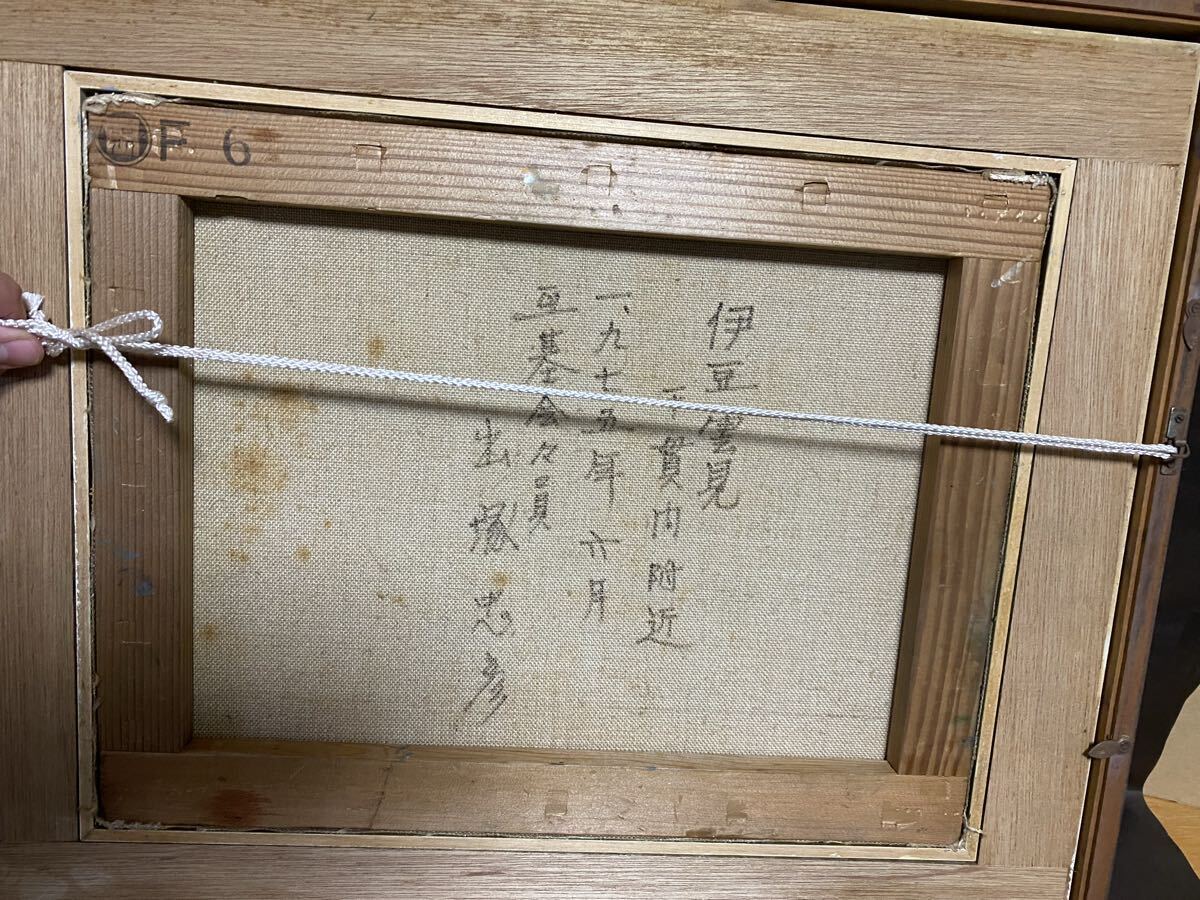 F 6
伊豆雲見
千貫门附近
一九七五年 六月
亜基会々員
出塚忠彦